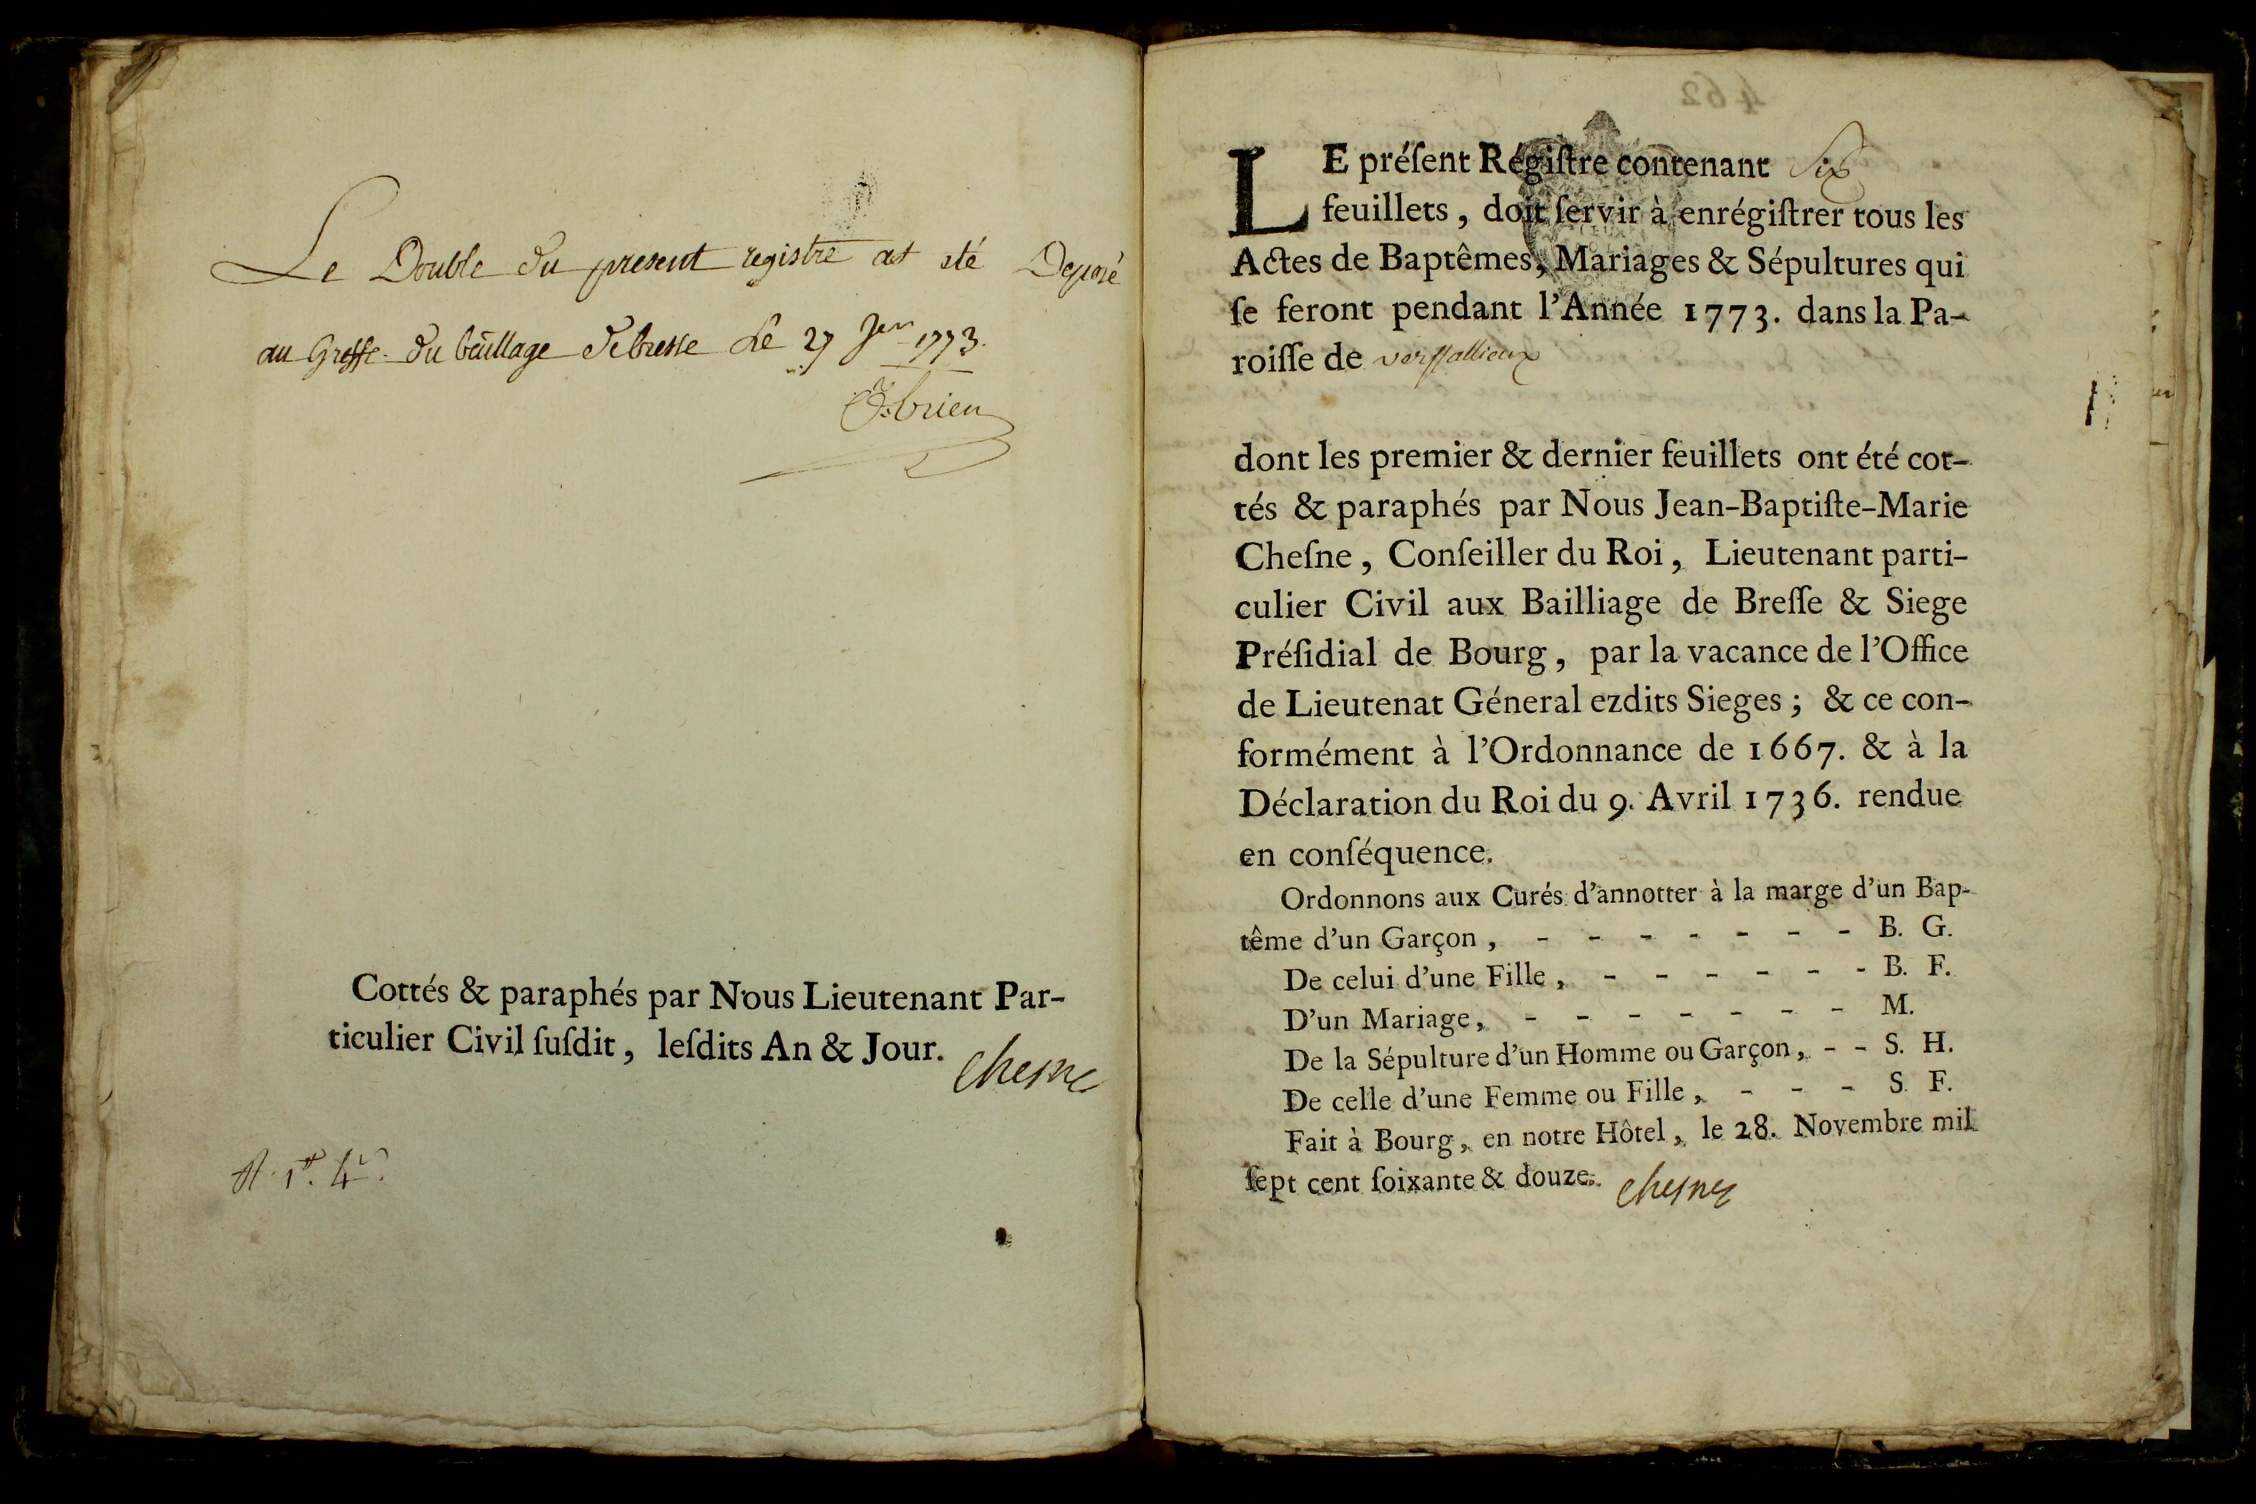 Le Double du present registre at eté Deposé
au Greffe du bailliage de bresse Le 27 Jer 1773.
Cottés & paraphés par Nous Lieutenant Par-
ticulier Civil ſuſdit, leſdits An & Jour.
Chesne
LE préſent Régiſtre contenant Six
feuillets, doit ſervir à enrégiſtrer tous les
Actes de Baptêmes, Mariages & Sépultures qui
ſe feront pendant l'Année 1773. dans la Pa-
roiſſe de versallieux
dont les premier & dernier feuillets ont été cot-
tés & paraphés par Nous Jean-Baptiſte-Marie
Cheſne, Conſeiller du Roi, Lieutenant parti-
culier Civil aux Bailliage de Breſſe & Siege
Préſidial de Bourg, par la vacance de l'Office
de Lieutenat Géneral ezdits Sieges; & ce con-
formément à l'Ordonnance de 1667. & à la
Déclaration du Roi du 9. Avril 1736. rendue
en conſéquence.
Ordonnons aux Curés d'annotter à la marge d'un Bap-
tême d'un Garçon, - - - - - - - B. G.
De celui d'une Fille, - - - - - - B. F.
D'un Mariage, - - - - - - - M.
De la Sépulture d'un Homme ou Garçon, - - S. H.
De celle d'une Femme ou Fille, - - - S. F.
Fait à Bourg, en notre Hôtel, le 28. Novembre mil
ſept cent ſoixante & douze. Chesne